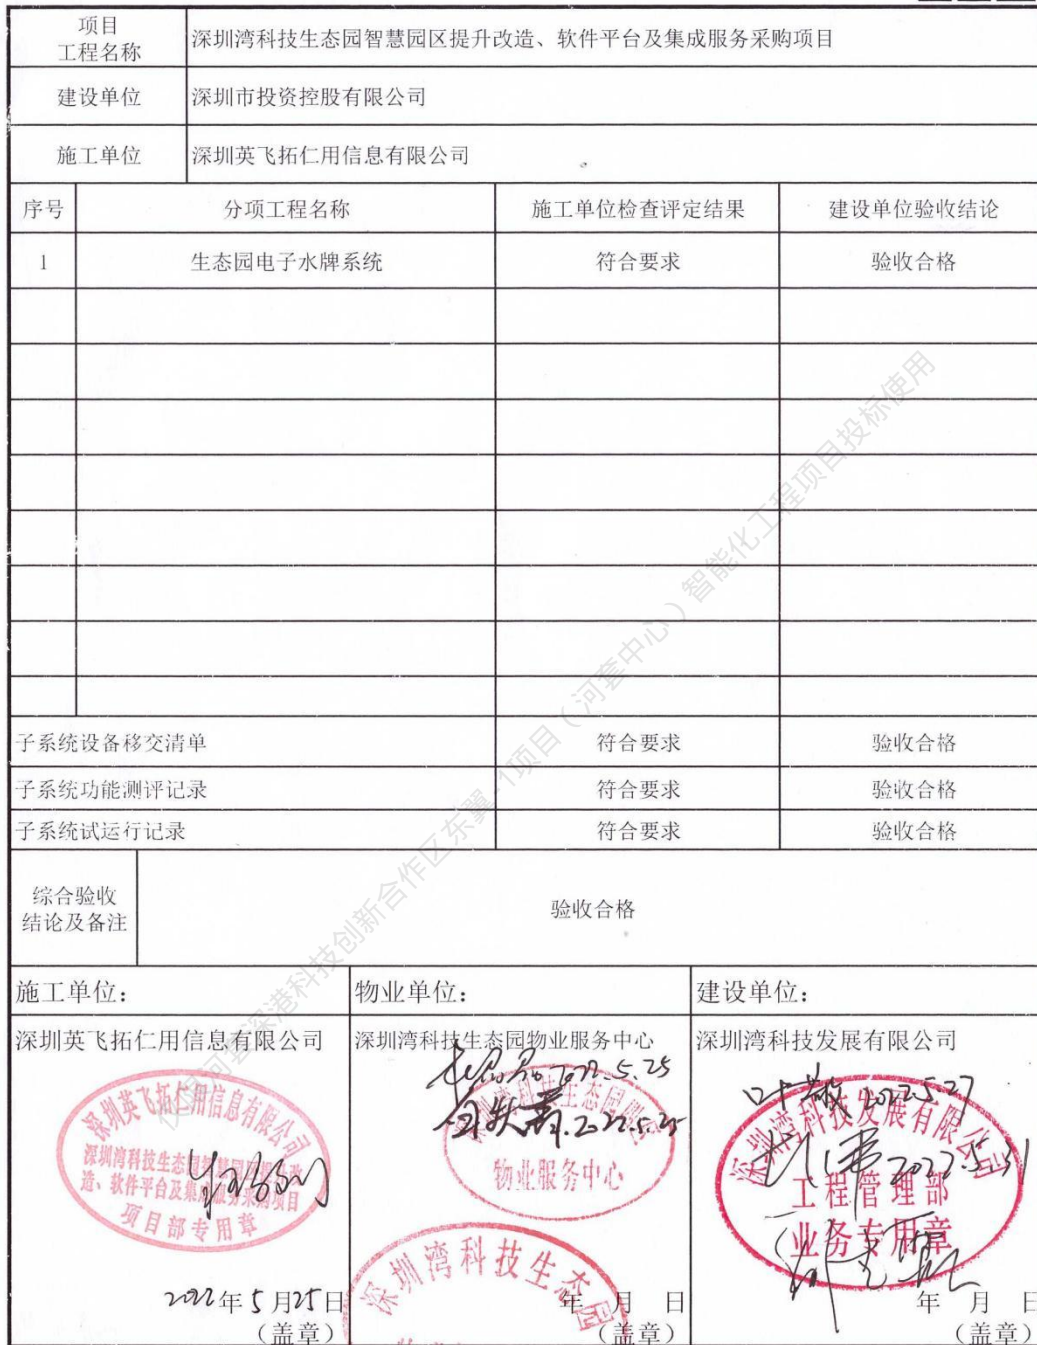 项目
工程名称
深圳湾科技生态园智慧园区提升改造、软件平台及集成服务采购项目
建设单位
深圳市投资控股有限公司
施工单位
深圳英飞拓仁用信息有限公司
序号 分项工程名称 施工单位检查评定结果 建设单位验收结论
1 生态园电子水牌系统 符合要求 验收合格
子系统设备移交清单 符合要求 验收合格
子系统功能测评记录 符合要求 验收合格
子系统试运行记录 符合要求 验收合格
综合验收
结论及备注
验收合格
施工单位：
深圳英飞拓仁用信息有限公司
深圳英飞拓仁用信息有限公司
深圳湾科技生态园智慧园区提升改
造、软件平台及集成服务采购项目
项目部专用章
2022年5月25日
（盖章）
物业单位：
深圳湾科技生态园物业服务中心
2022.5.25
2022.5.25
物业服务中心
深圳湾科技生态园
年 月 日
（盖章）
建设单位：
深圳湾科技发展有限公司
2022.5.27
深圳湾科技发展有限公司
2022.5.31
工程管理部
业务专用章
年 月 日
（盖章）
仅限河套深港科技创新合作区东翼-1项目（河套中心）智能化工程项目投标使用